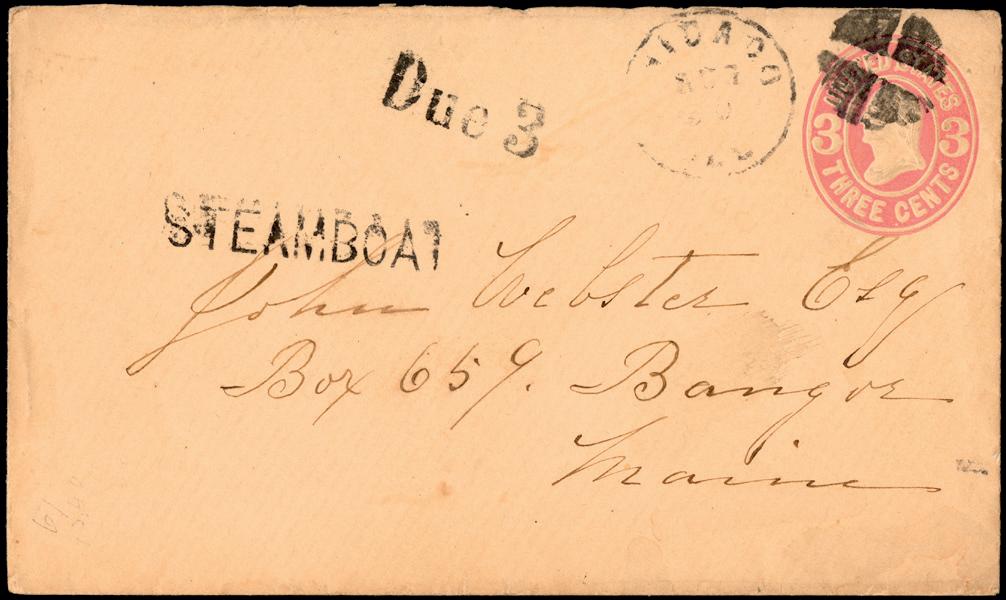 Due 3
CHICAGO
SEP
ILL
UNITED STATES
3 3
THREE CENTS
STEAMBOAT
John Webster Esq
Box 659. Bangor
Maine